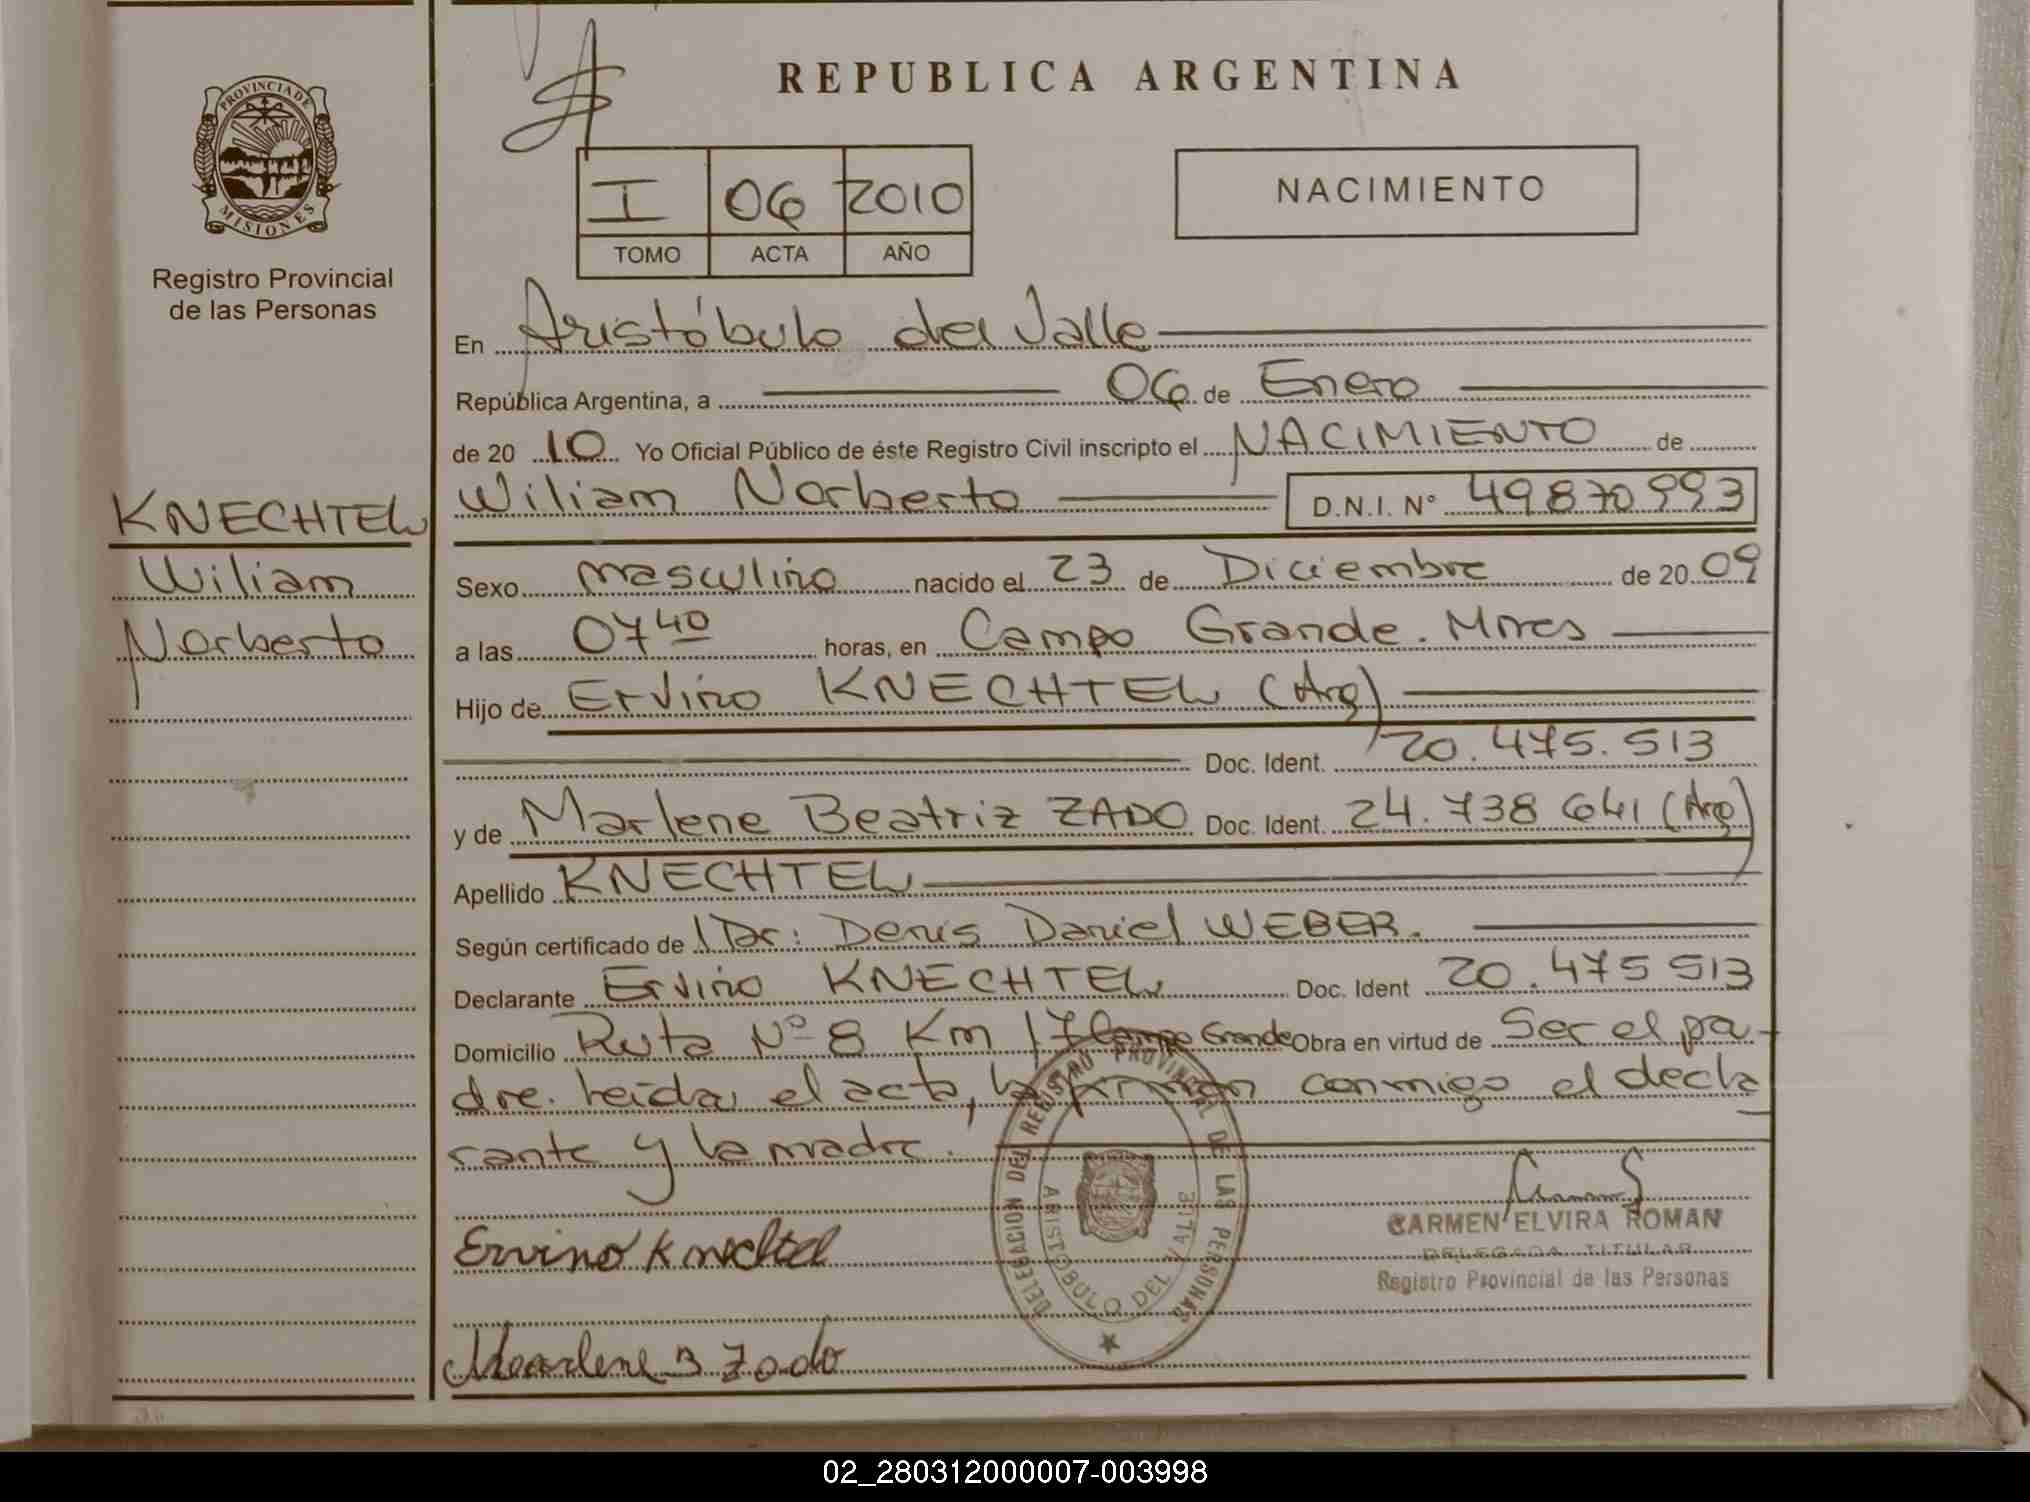 PROVINCIA DE
MISIONES
Registro Provincial
de las Personas
KNECHTEL
Wiliam
Norberto
REPUBLICA ARGENTINA
I 06 2010
TOMO ACTA AÑO
NACIMIENTO
En Aristóbulo del Valle
República Argentina, a 06 de Enero
de 20 10 Yo Oficial Público de éste Registro Civil inscripto el NACIMIENTO de
Wiliam Norberto D.N.I. N° 49870993
Sexo masculino nacido el 23 de Diciembre de 20 09
a las 07 40 horas, en Campo Grande. Mnes
Hijo de Ervino KNECHTEL (Arg)
Doc. Ident. 20.475.513
y de Marlene Beatriz ZADO Doc. Ident. 24.738641 (Arg)
Apellido KNECHTEL
Según certificado de Dr: Denis Daniel WEBER.
Declarante Ervino KNECHTEL Doc. Ident 20.475513
Domicilio Ruta N° 8 Km 17 Campo Grande Obra en virtud de Ser el pa-
dre. leida el acta, la firman conmigo el decla
rante y la madre.
DELEGACION DEL REGISTRO PROVINCIAL DE LAS PERSONAS
ARISTOBULO DEL VALLE
CARMEN ELVIRA ROMAN
DELEGADA TITULAR
Registro Provincial de las Personas
Ervino Knechtel
Marlene B Zado
02_280312000007-003998